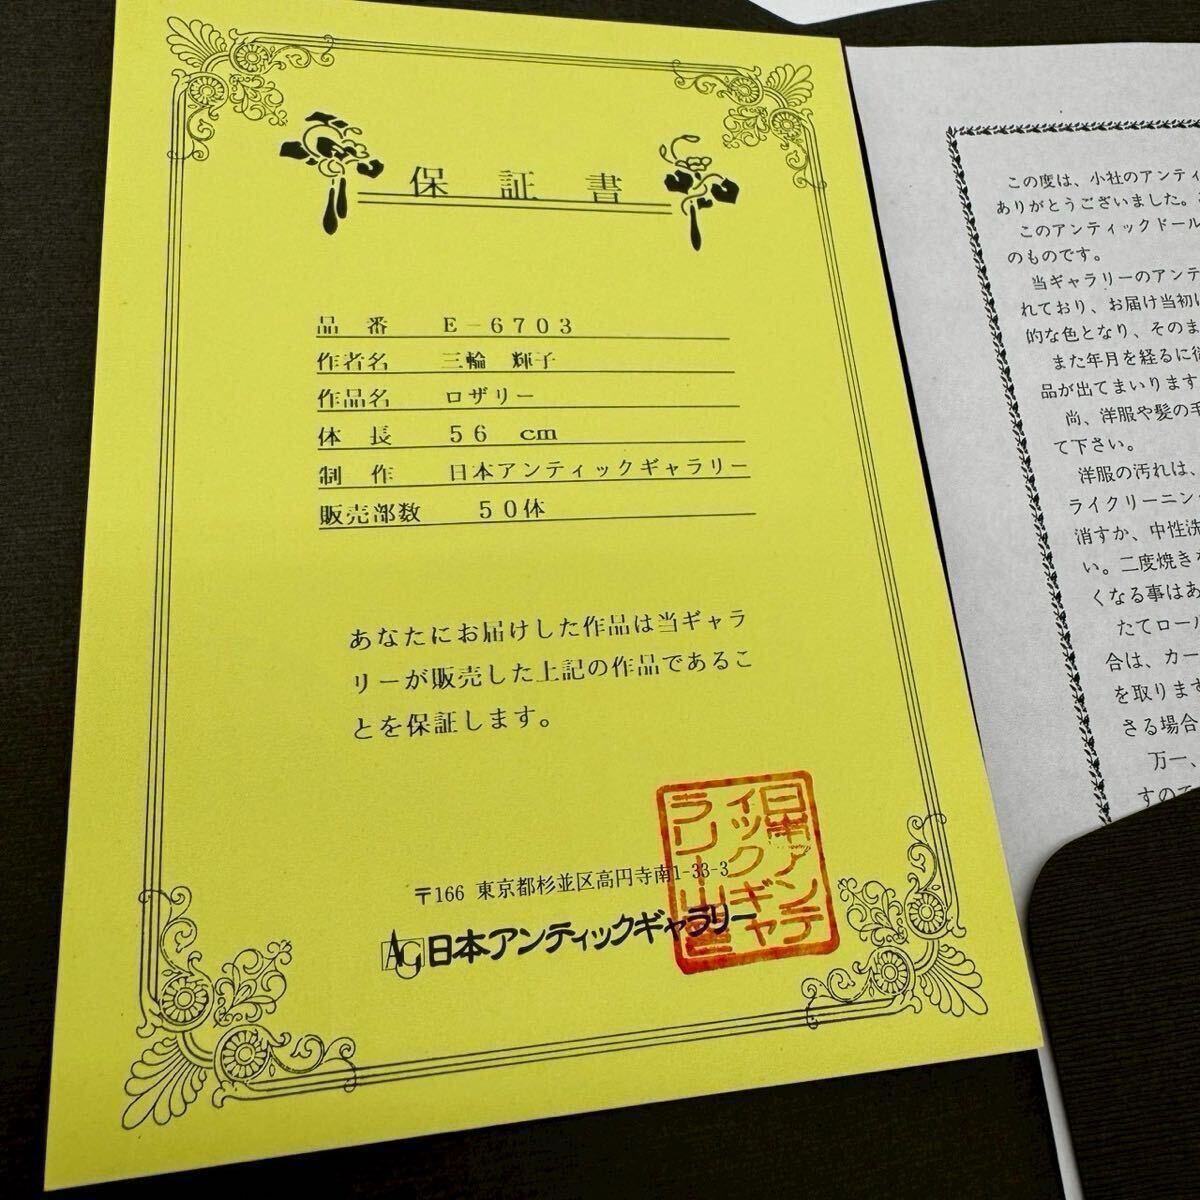 保証書
品番 E-6703
作者名 三輪 輝子
作品名 ロザリー
体長 56 cm
制作 日本アンティックギャラリー
販売部数 50体
あなたにお届けした作品は当ギャラ
リーが販売した上記の作品であるこ
とを保証します。
〒166 東京都杉並区高円寺南1-33-3
AG 日本アンティックギャラリー
日本アンテ
ィックギャ
ラリー
この度は、小社のアンティ
ありがとうございました。
このアンティックドール
のものです。
当ギャラリーのアンテ
れており、お届け当初に
的な色となり、そのま
また年月を経るに
品が出てまいります
尚、洋服や髪の毛
て下さい。
洋服の汚れは、
ライクリーニン
消すか、中性洗
い。二度焼き
くなる事はあ
たてロール
合は、カー
を取ります
さる場合
万一、
すので